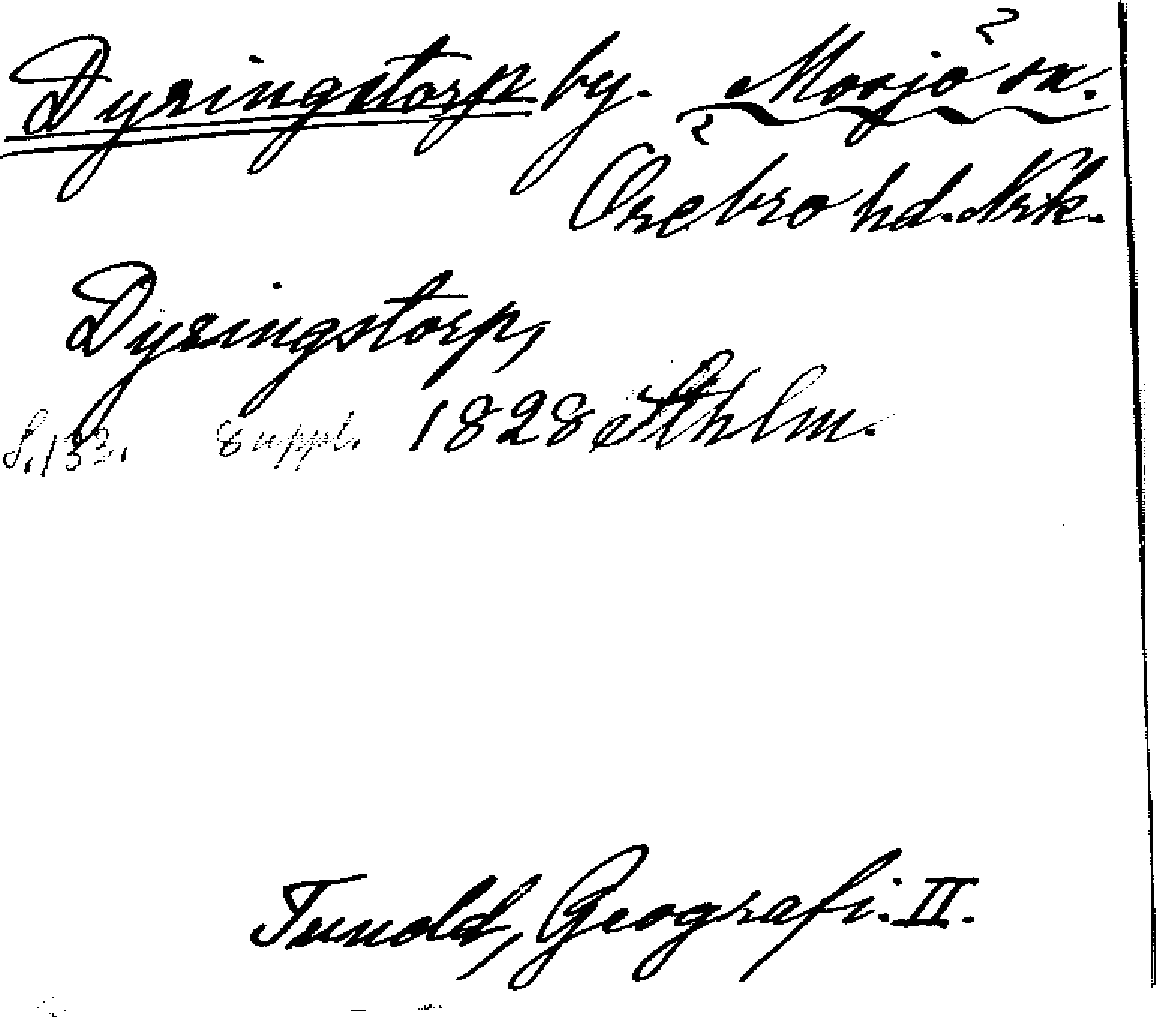 Dyringstorp by. Mosjö sn.
Örebro hd. Nrk.
Dyringstorp,
S. 133. Suppl. 1828 Sthlm.
Tunold, Geografi. II.